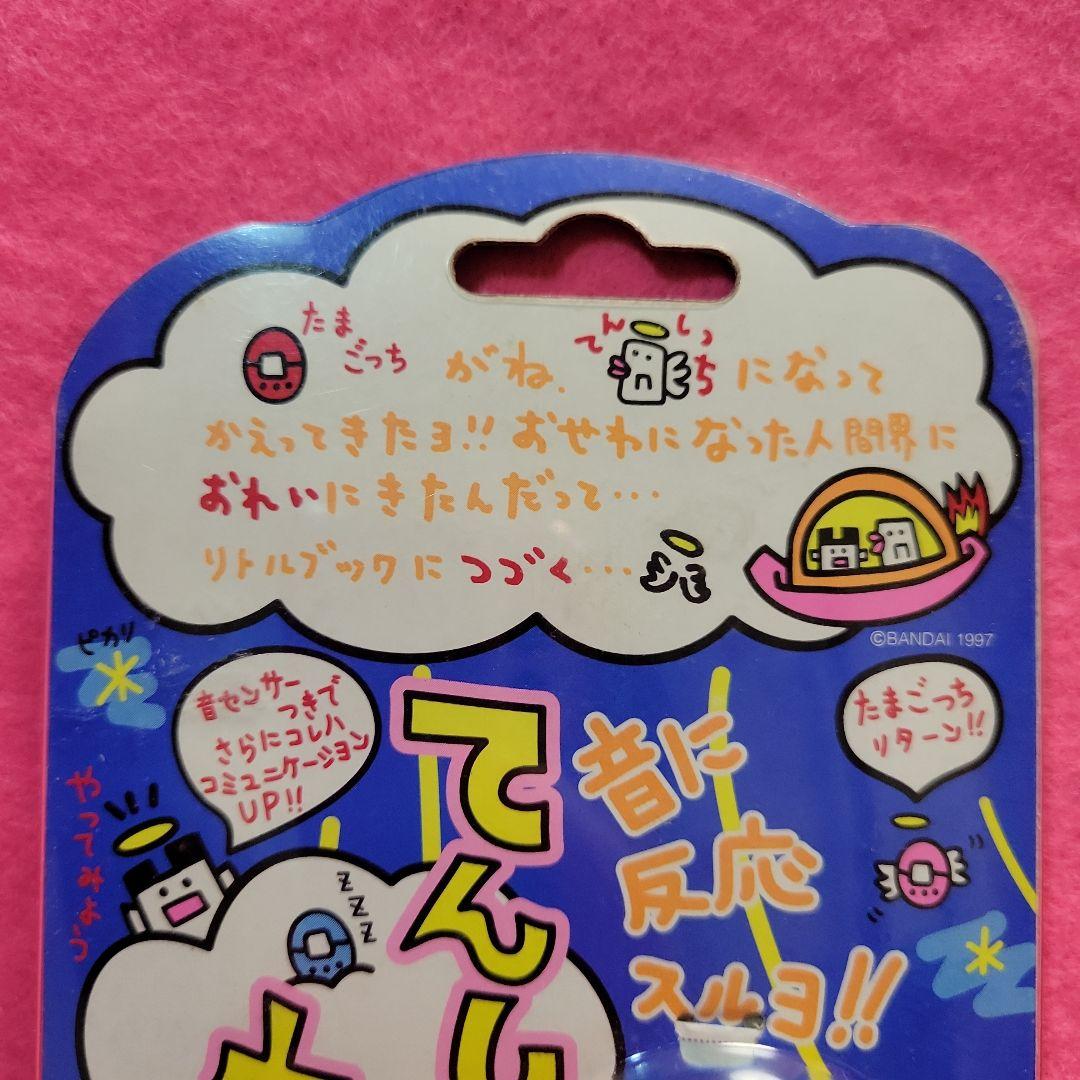 たまごっち がね、てんしっち になって
かえってきたヨ!! おせわになった人間界に
おれいにきたんだって…
リトルブックに つづく…
©BANDAI 1997
ピカリ
音センサー
つきで
さらにコレハ
コミュニケーション
UP!!
たまごっち
リターン!!
やってみよう
zzz
音に
反応
スルヨ!!
てんし